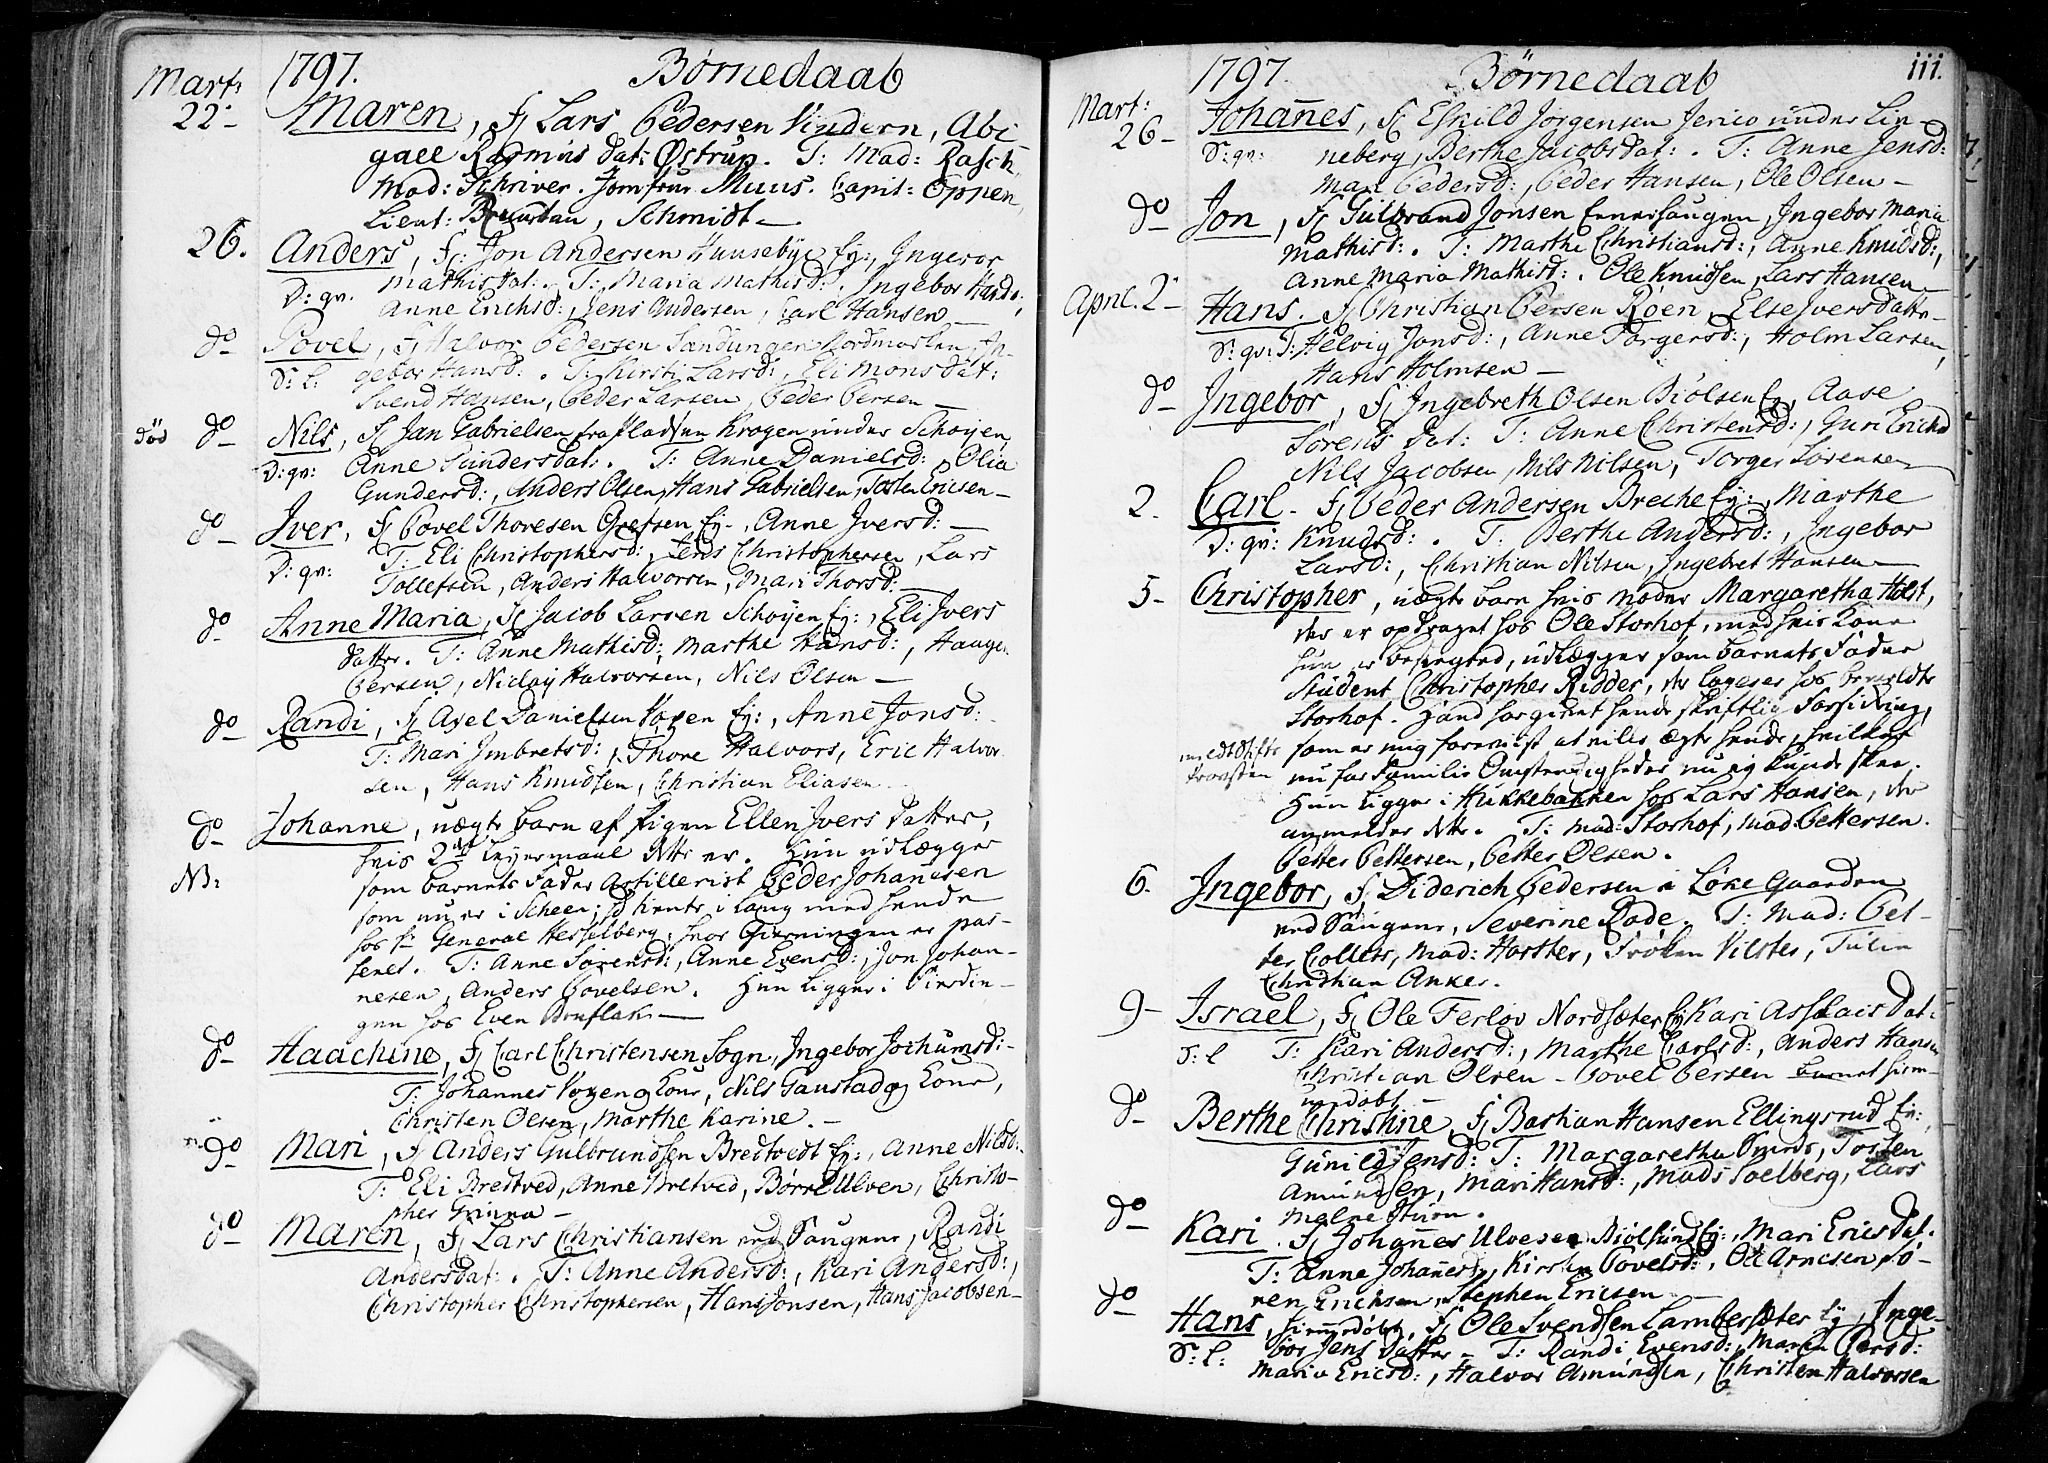 1797. Børnedaab
Mart:
22- Maren, f. Lars Pedersen Vindern, Abi-
gael Rasmus dat: Østrup. T: Mad: Rasch,
Mad: Schriver. Jomfrue Muus. Capit: Oppen,
Lieut: Schmidt-
26. Anders, f: Jon Andersen Huusebye Ey:, Ingebor
D: qv. Mathisdat:. T: Maria Mathisd:, Ingebor
Anne Erichsd:, Jens Andersen, Carl Hansen-
do- Povel, f. Halvor Pedersen Sandungen Nordmarken, In-
D: L: gebor Hansd:. T: Kirsti Larsd:, Eli Monsdat:
Svend Hansen, Peder Larsen, Peder Persen-
död do- Nils, f. Jan Gabrielsen fra Pladsen Krogen under Schøyen
D: qv: Anne Gundersdat:. T: Anne Danielsd: Olia
Gundersd:, Anders Olsen, Hans Gabrielsen, Tosten Ericsen-
do- Iver, f. Povel Thoresen Grefsen Ey-, Anne Iversd:-
D: qv: T: Eli Christophersd:, Jens Christophersen, Lars
Tollefsen, Anders Halvorsen, Mari Thorsd:
do- Anne Maria, f. Jacob Larsen Schøyen Ey:, Eli Ivers
datter. T: Anne Mathisd:, Marthe Hansd:, Haagen
Persen, Niclay Halvorsen, Nils Olsen-
do- Randi, f. Axel Danielsen Voxen Ey:, Anne Jonsd:
T: Mari Imbretsd:, Thore Halvors, Eric Halvor-
sen, Hans Knudsen, Christian Eliasen.
do- Johanne, uægte barn af Pigen Ellen Ivers datter,
hvis 2det Leyermaal dette er. Hun udlægger
NB: som barnets Fader Artillerist Peder Johannesen
som nu er i Scheen, tiente i laug med hende
hos Hr General Hesselberg, hvor Gierningen er pas-
seret. T: Anne Sørensd:, Anne Evensd:, Jon Johan-
nesen, Anders Povelsen. Hun ligger i Pierdin-
gen hos Even
do- Haachine, f. Carl Christensen Sogn, Ingebor Jochumsd:-
T: Johannes Voxen og Kone, Nils Gaustad og Kone,
Christen Olsen, Marthe Karine.-
do- Mari, f. Anders Gulbrandsen Bredtvedt Ey:, Anne Nilsd:
T: Eli Bredtved, Anne Bretved, Børre Ulven, Christo-
pher Grinna-
do- Maren, f. Lars Christiansen ved Saugene, Randi
Andersdat:. T: Anne Andersd:, Kari Andersd:,
Christopher Christophersen, Hans Jonsen, Hans Jacobsen-
1797. Börnedaab 111.
Mart:
26- Johannes, f. Eskild Jørgensen Jerico under Lin-
D: qv: neberg, Berthe Jacobsdat:. T: Anne Jensd:
Mari Pedersd:, Peder Hansen, Ole Olsen-
do- Jon, f. Gulbrand Jonsen Ennerhaugen, Ingebor Maria
Mathisd:. T: Marthe Christiansd:, Anne Knudsd:,
Anne Maria Mathisd:. Ole Knudsen, Lars Hansen-
April. 2- Hans. f. Christian Persen Roen, Else Iversdatter-
D: qv: T: Helvig Jonsd:, Anne Torgersd:, Holm Larsen,
Hans Holmsen-
do- Ingebor, f. Ingebreth Olsen Biølsen Ey, Aase
Sørens dat: T: Anne Christensd:, Guri Erichsd
Nils Jacobsen, Nils Nilsen, Torger Sørensen
2. Carl- f. Peder Andersen Breche Ey:, Marthe
D: qv: Knudsd:. T: Berthe Andersd:, Ingebor
Larsd:, Christian Nilsen, Ingebret Hansen-
5- Christopher, uægte barn hvis moder Margaretha Holst,
der er opdraget hos Ole Storhof, med hvis Kone
hun er besvogred, udlægger som barnets Fader
Student Christopher Ridder, der logerer hos bemeldte
Storhof. Hand har givet hende skriftlig Forsikring,
som er mig forevist at ville ægte hende, hvilket
nu for Familie Omstændigheder nu ej kunde skee.
Hun ligger i Hukkebakken hos Lars Hansen, der
anmelder dette. T: Mad: Storhof, Mad Pettersen.
Petter Pettersen, Petter Olsen.
meldt Stifts
Provsten
6. Ingebor, f. Diderich Pedersen i Løke Gaarden
ved Saugene, Severine Rode. T: Mad: Pet-
ter Collett, Mad: Horster, Frøken Vilster, Tulin
Christian Anker.
9- Israel, f. Ole Ferlov Nordsæter Ey Kari Asslaisdat:
D: L T: Kari Andersd:, Marthe Carlsd:, Anders Hansen
Christian Olsen- Povel Persen barnet hiem-
medøbt-
do- Berthe Christine, f. Bastian Hansen Ellingsrud Ey:,
Gunild Jensd: T: Margaretha Tosten
Amundsen, Mari Hansd:, Mads Soelberg, Lars
Malne
do- Kari. f. Johannes Ulvesen Biølsund Ey:, Mari Ericsdat.
T: Anne Johannesd:, Kirsten Povelsd:, Ole Arnesen Sø-
ren Erichsen, Stephen Ericsen-
do- Hans, hiemedøbt, f. Ole Svendsen Lambersæter Ey, Inge-
D: L: bor Jens datter- T: Randi Evensd:, Maren Persd:
Maria Ericsd:, Halvor Amundsen, Christen Halvorsen